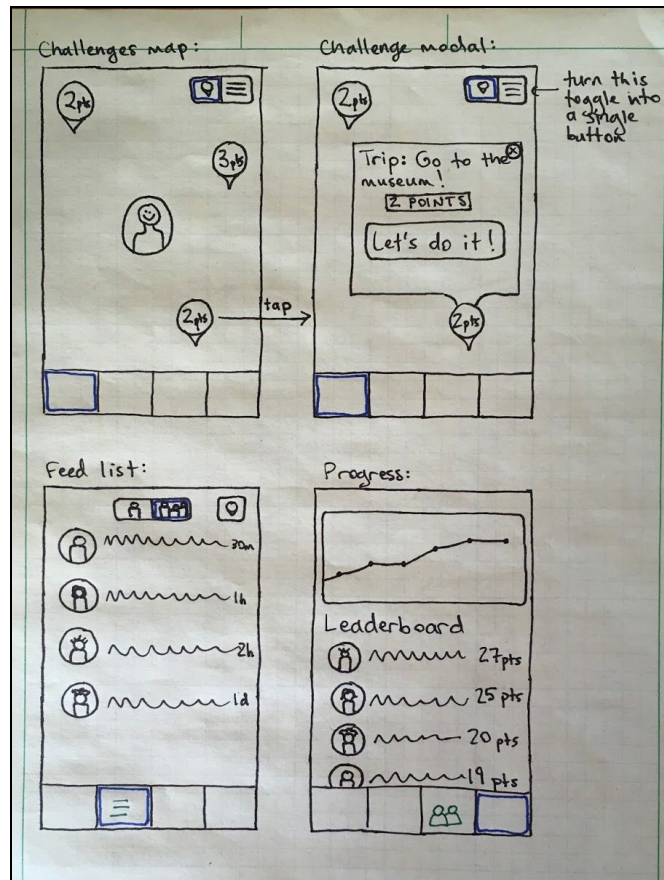 Challenges map:
2pts
3pts
2pts
tap
Challenge modal:
2pts
turn this
toggle into
a single
button
Trip: Go to the
museum!
2 POINTS
Let's do it!
2pts
Feed list:
30m
1h
2h
1d
Progress:
Leaderboard
27pts
25 pts
20 pts
19 pts